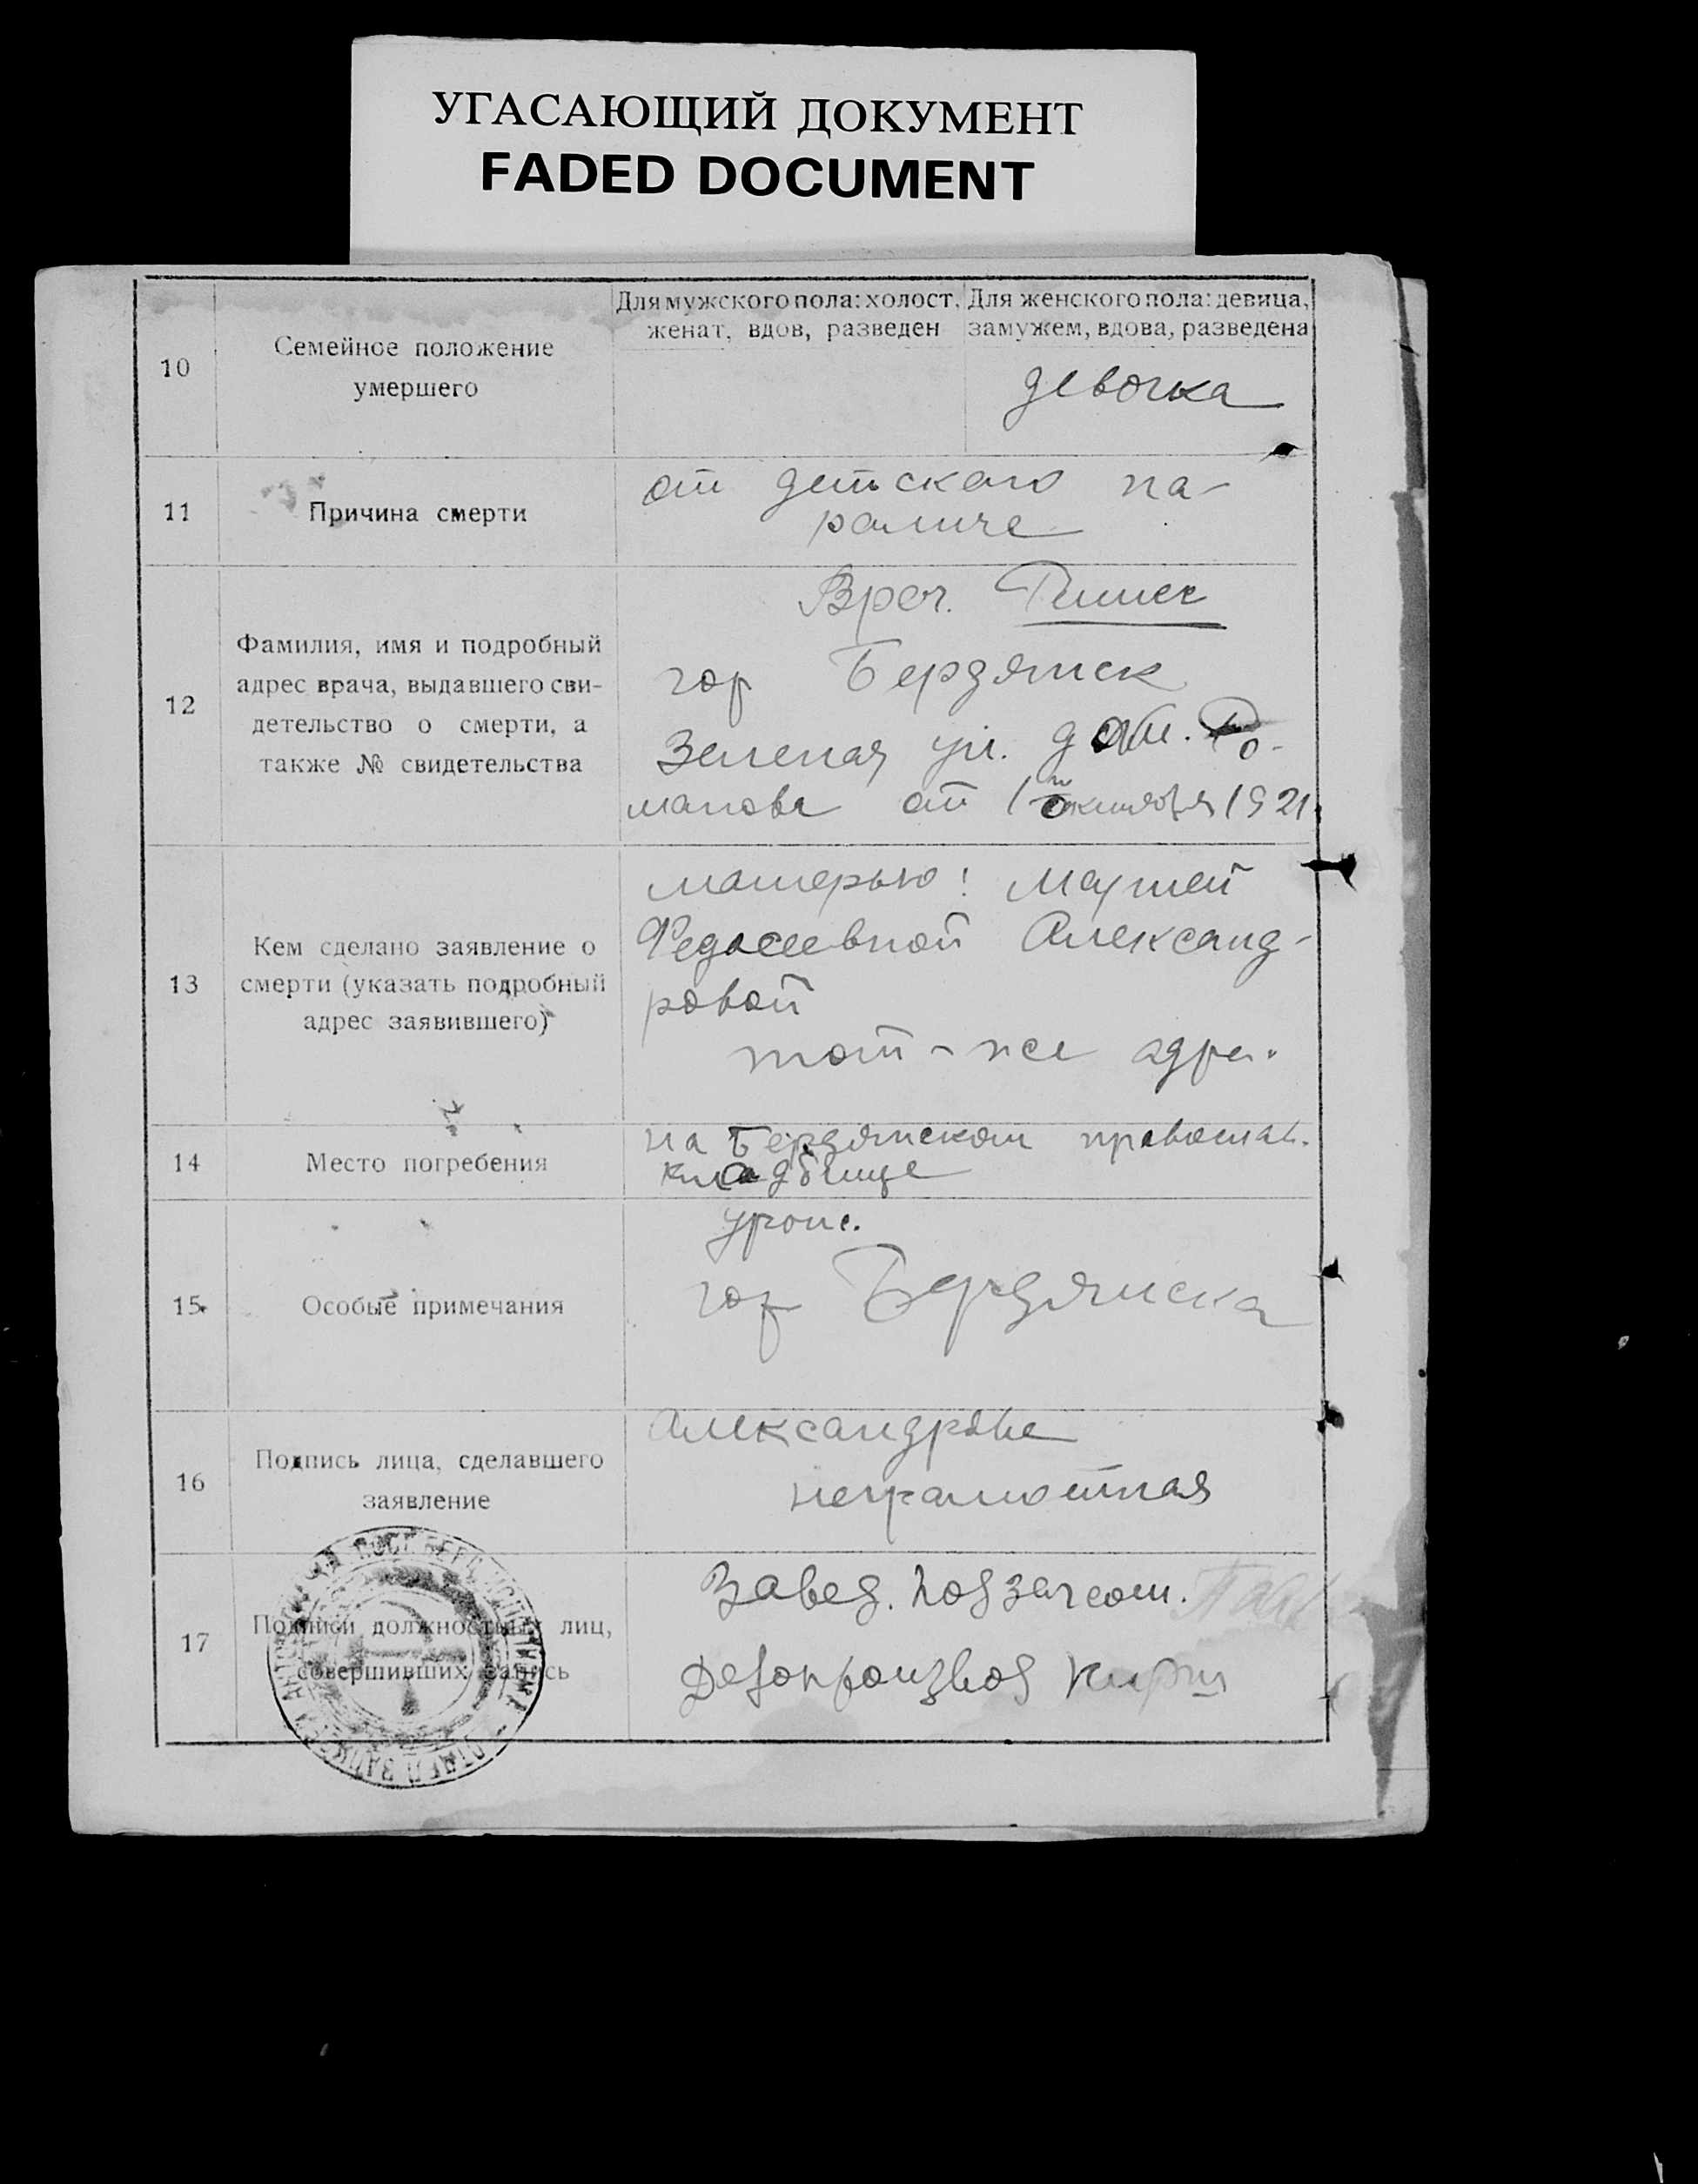 УГАСАЮЩИЙ ДОКУМЕНТ
FADED DOCUMENT
10
Семейное положение
умершего
Для мужского пола: холост,
женат, вдов, разведен
Для женского пола: девица,
замужем, вдова, разведена
девочка
11
Причина смерти
от детского па-
ралича
12
Фамилия, имя и подробный
адрес врача, выдавшего сви-
детельство о смерти, а
также № свидетельства
Врач.
гор Бердянск
Зеленая ул. дом. Ро-
манова от октября 1921
13
Кем сделано заявление о
смерти (указать подробный
адрес заявившего)
матерью: Марией
Федосеевной Александ-
ровой
тот-же адре.
14
Место погребения
на Бердянском православ.
кладбище
15
Особые примечания
урож.
гор Бердянска
16
Подпись лица, сделавшего
заявление
Александрова
неграмотная
17
Подписи должностных лиц,
совершивших запись
Завед. подзагсом.
Делопроизвод